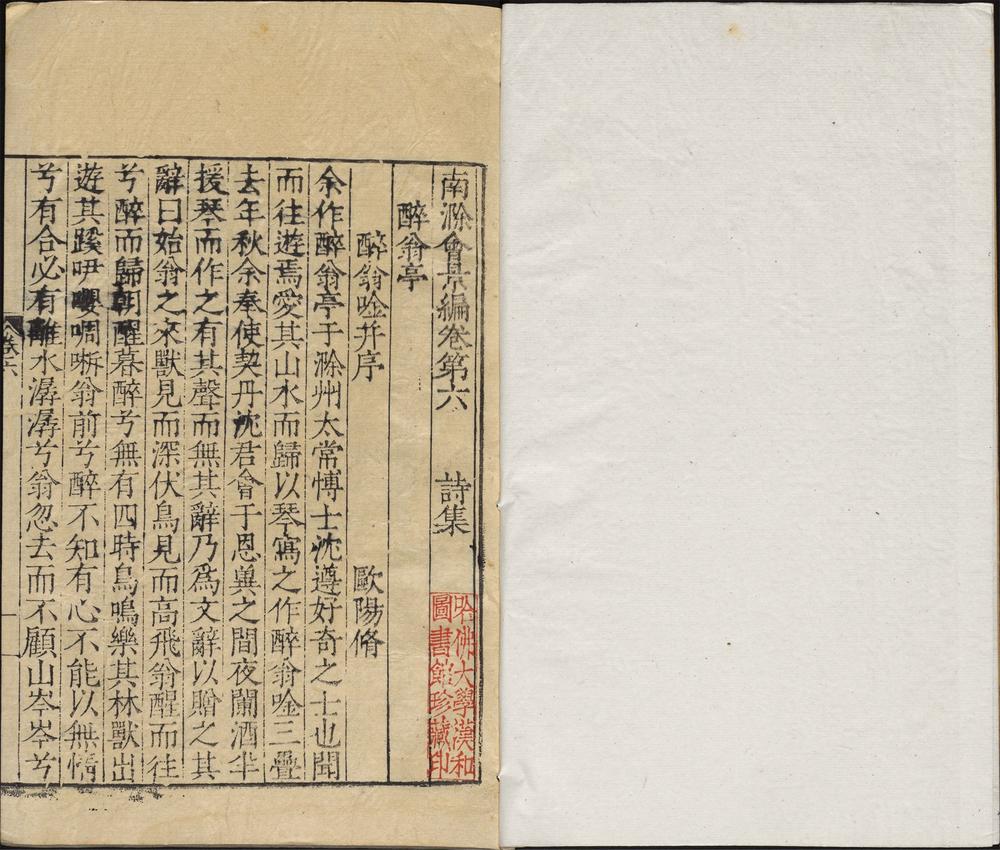 南滁會景編卷第六 詩集
醉翁亭
醉翁唫并序 歐陽脩
余作醉翁亭于滁州太常博士沈遵好奇之士也聞
而往遊焉愛其山水而歸以琴寫之作醉翁唫三疊
去年秋余奉使契丹沈君會于恩兾之間夜闌酒半
援琴而作之有其聲而無其辭乃爲文辭以贈之其
辭曰始翁之來獸見而深伏鳥見而高飛翁醒而往
兮醉而歸朝醒暮醉兮無有四時鳥鳴樂其林獸出
遊其蹊咿嚶啁哳翁前兮醉不知有心不能以無情
兮有合必有離水潺潺兮翁忽去而不顧山岑岑兮
卷六
哈佛大學漢和
圖書館珍藏印